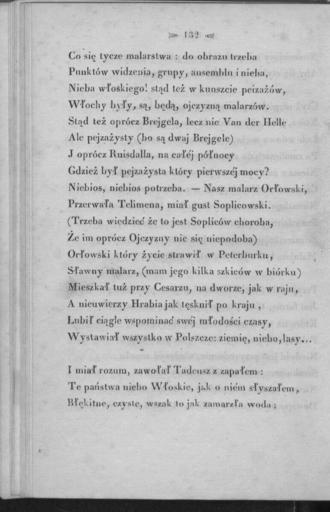 132
Co się tycze malarstwa : do obrazu trzeba
Punktów widzenia, grupy, ansemblu i nieba,
Nieba włoskiego! stąd też w kunszcie peizażów,
Włochy były, są, będą, ojczyzną malarzów.
Stąd też oprócz Brejgela, lecz nie Van der Helle
Ale pejzażysty (bo są dwaj Brejgele)
I oprócz Ruisdalla, na całéj północy
Gdzież był pejzażysta który pierwszéj mocy?
Niebios, niebios potrzeba. — Nasz malarz Orłowski,
Przerwała Telimena, miał gust Soplicowski.
(Trzeba wiedzieć że to jest Sopliców choroba,
Że im oprócz Ojczyzny nic się niepodoba)
Orłowski który życie strawił w Peterburku,
Sławny malarz, (mam jego kilka szkiców w biórku)
Mieszkał tuż przy Cesarzu, na dworze, jak w raju,
A nieuwierzy Hrabia jak tęsknił po kraju ,
Lubił ciągle wspominać swéj młodości czasy,
Wystawiał wszystko w Polszcze: ziemię, niebo, lasy...
I miał rozum, zawołał Tadeusz z zapałem :
Te państwa niebo Włoskie, jak o niém słyszałem,
Błękitne, czyste, wszak to jak zamarzła woda ;